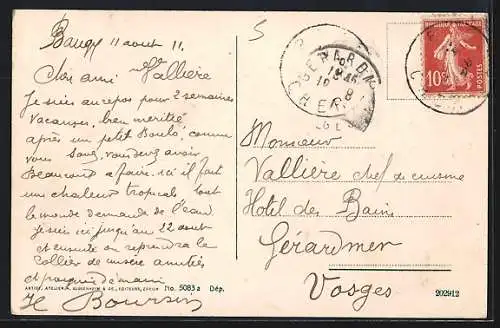 Baugy 11 aout 11.
Cher ami Vallière
Je suis au repos pour 2 semaines
Vacances, bien mérité
après un petit Boulo, comme
vous savez, vous devez avoir
Beaucoup a faire. ici il fait
une chaleur tropicale tout
le monde demande de l'eau
Je suis ici jusqu'au 22 aout
et ensuite on reprendra le
collier de misère amitiés
et poignée de main
H Boursin
Monsieur
Vallière chef de cuisine
Hotel des Bains
Gérardmer
Vosges
GERARDMER
10c
POSTES
No. 5083 a Dép.
202912